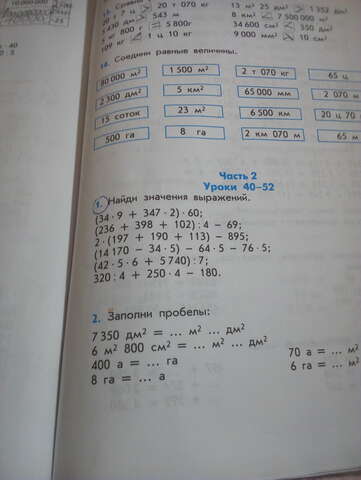 10 000 000
25
· 40
0 · 5
13. Соедини
20 т 7 ц 20 т 070 кг 13 м² 25 дм² 1 353 дм²
1 430 дм 543 м 8 км² 7 500 000 м²
5 кг 800 г 5 800г 34 600 см² 350 дм²
109 кг 1 ц 10 кг 9 000 мм² 10 см²
14. Соедини равные величины.
80 000 м² 1 500 м² 2 т 070 кг 65 ц
2 300 дм² 5 км² 65 000 мм 2 070 м
15 соток 23 м² 6 500 км 20 ц 70
500 га 8 га 2 км 070 м 65 м
Часть 2
Уроки 40–52
1. Найди значения выражений.
(34 · 9 + 347 · 2) · 60;
(236 + 398 + 102) : 4 – 69;
2 · (197 + 190 + 113) – 895;
(14 170 – 34 · 5) – 64 · 5 – 76 · 5;
(42 · 5 · 6 + 5 740) : 7;
320 : 4 + 250 · 4 – 180.
2. Заполни пробелы:
7 350 дм² = ... м² ... дм²
6 м² 800 см² = ... м² ... дм²
400 а = ... га 70 а = ... м²
8 га = ... а 6 га = ... м²